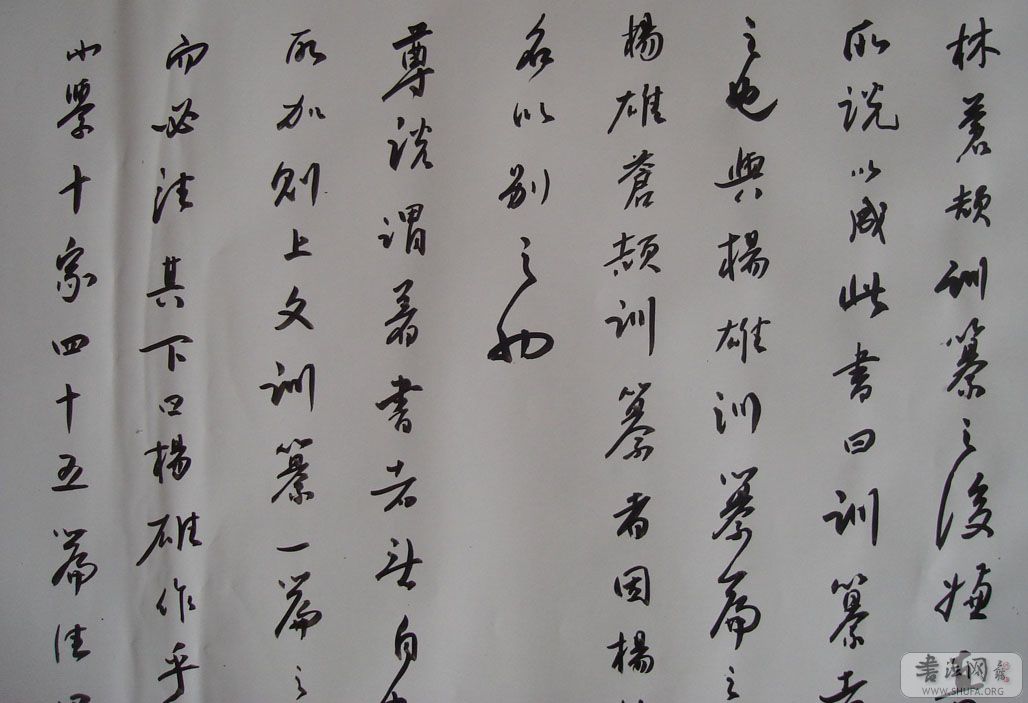 林蒼頡訓纂之後嫌
所說以成此書曰訓纂者
之也與楊雄訓纂篇之
楊雄蒼頡訓纂者因楊
名以別之也
尊說謂著書者無自
所加則上文訓纂一篇之
而必注其下曰楊雄作乎
小學十家四十五篇注
書法网
WWW.SHUFA.ORG